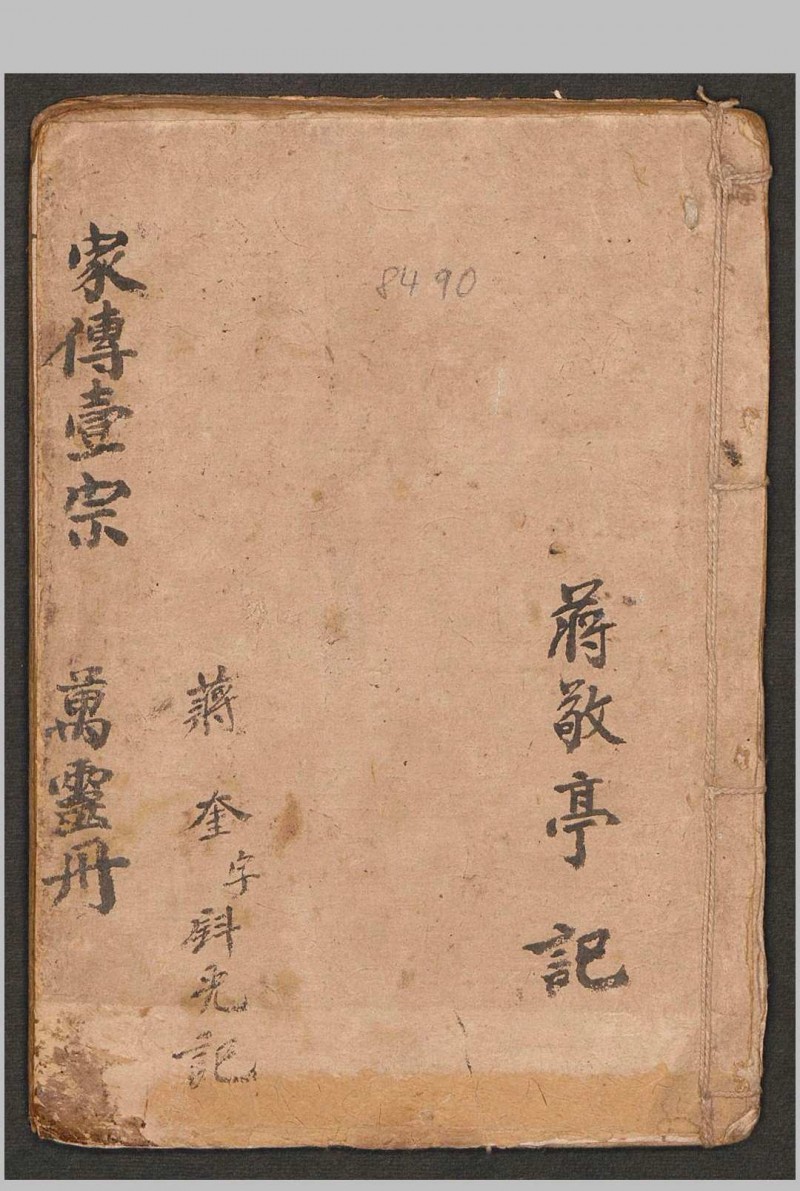 蔣敬亭 記
蔣 奎 字 斛光記
家傳壹宗 萬靈冊
8490